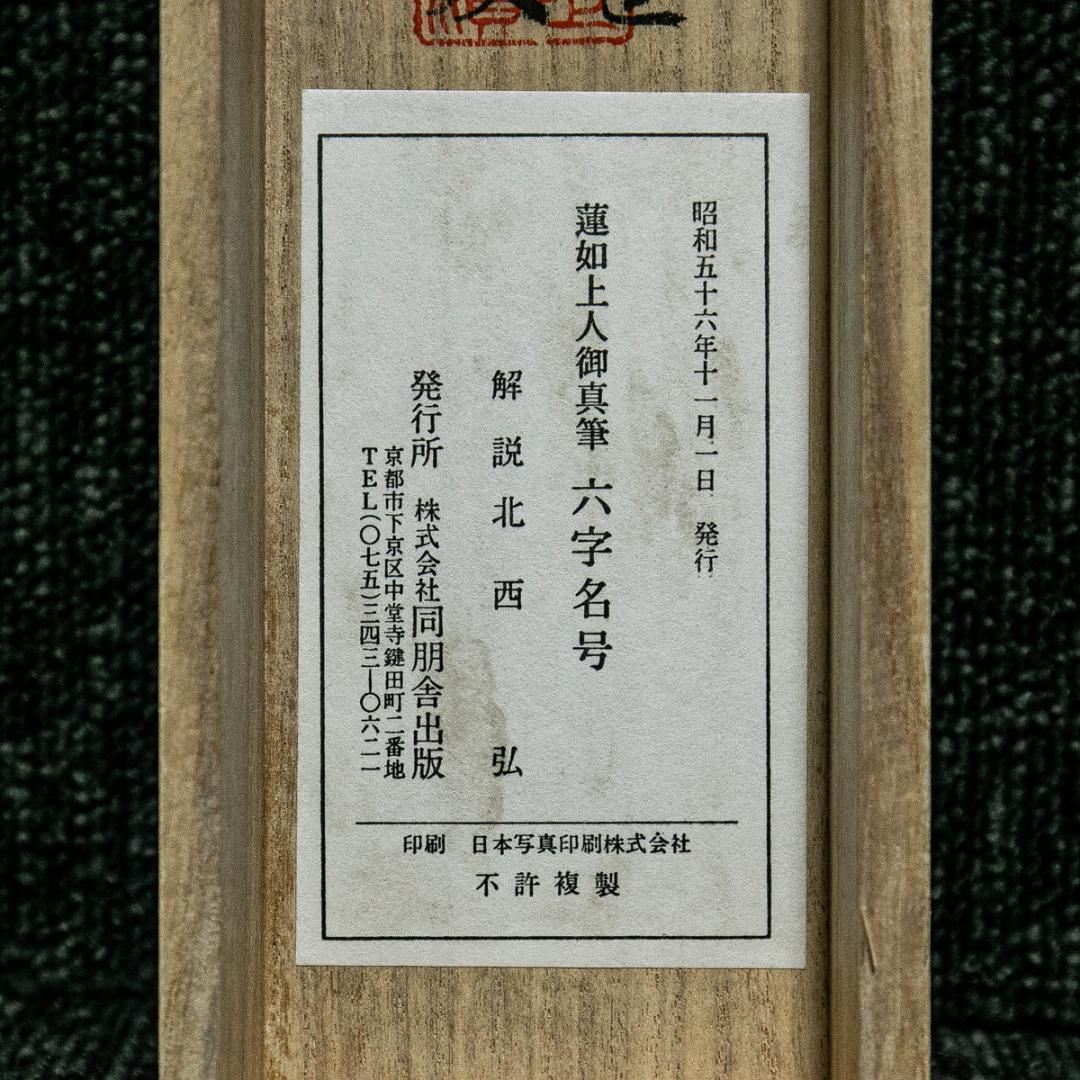 昭和五十六年十一月一日 発行
蓮如上人御真筆 六字名号
解説 北西 弘
発行所 株式会社 同朋舎出版
京都市下京区中堂寺鍵田町二番地
TEL(〇七五)三四三―〇六二一
印刷 日本写真印刷株式会社
不許複製